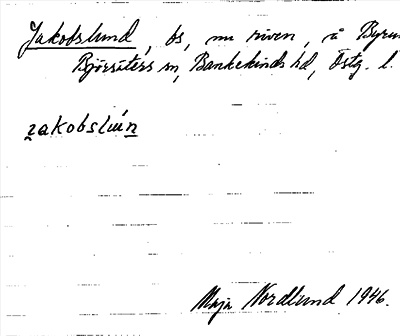 Jakobslund, bs, nu riven, å Byrum
Björsäters sn, Bankekinds hd, Östg. l.
jakobslún
Maja Nordlund 1946.